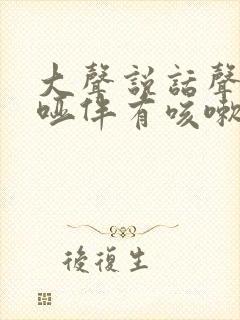 大聲説話聲
啞伴有咳嗽
後復生